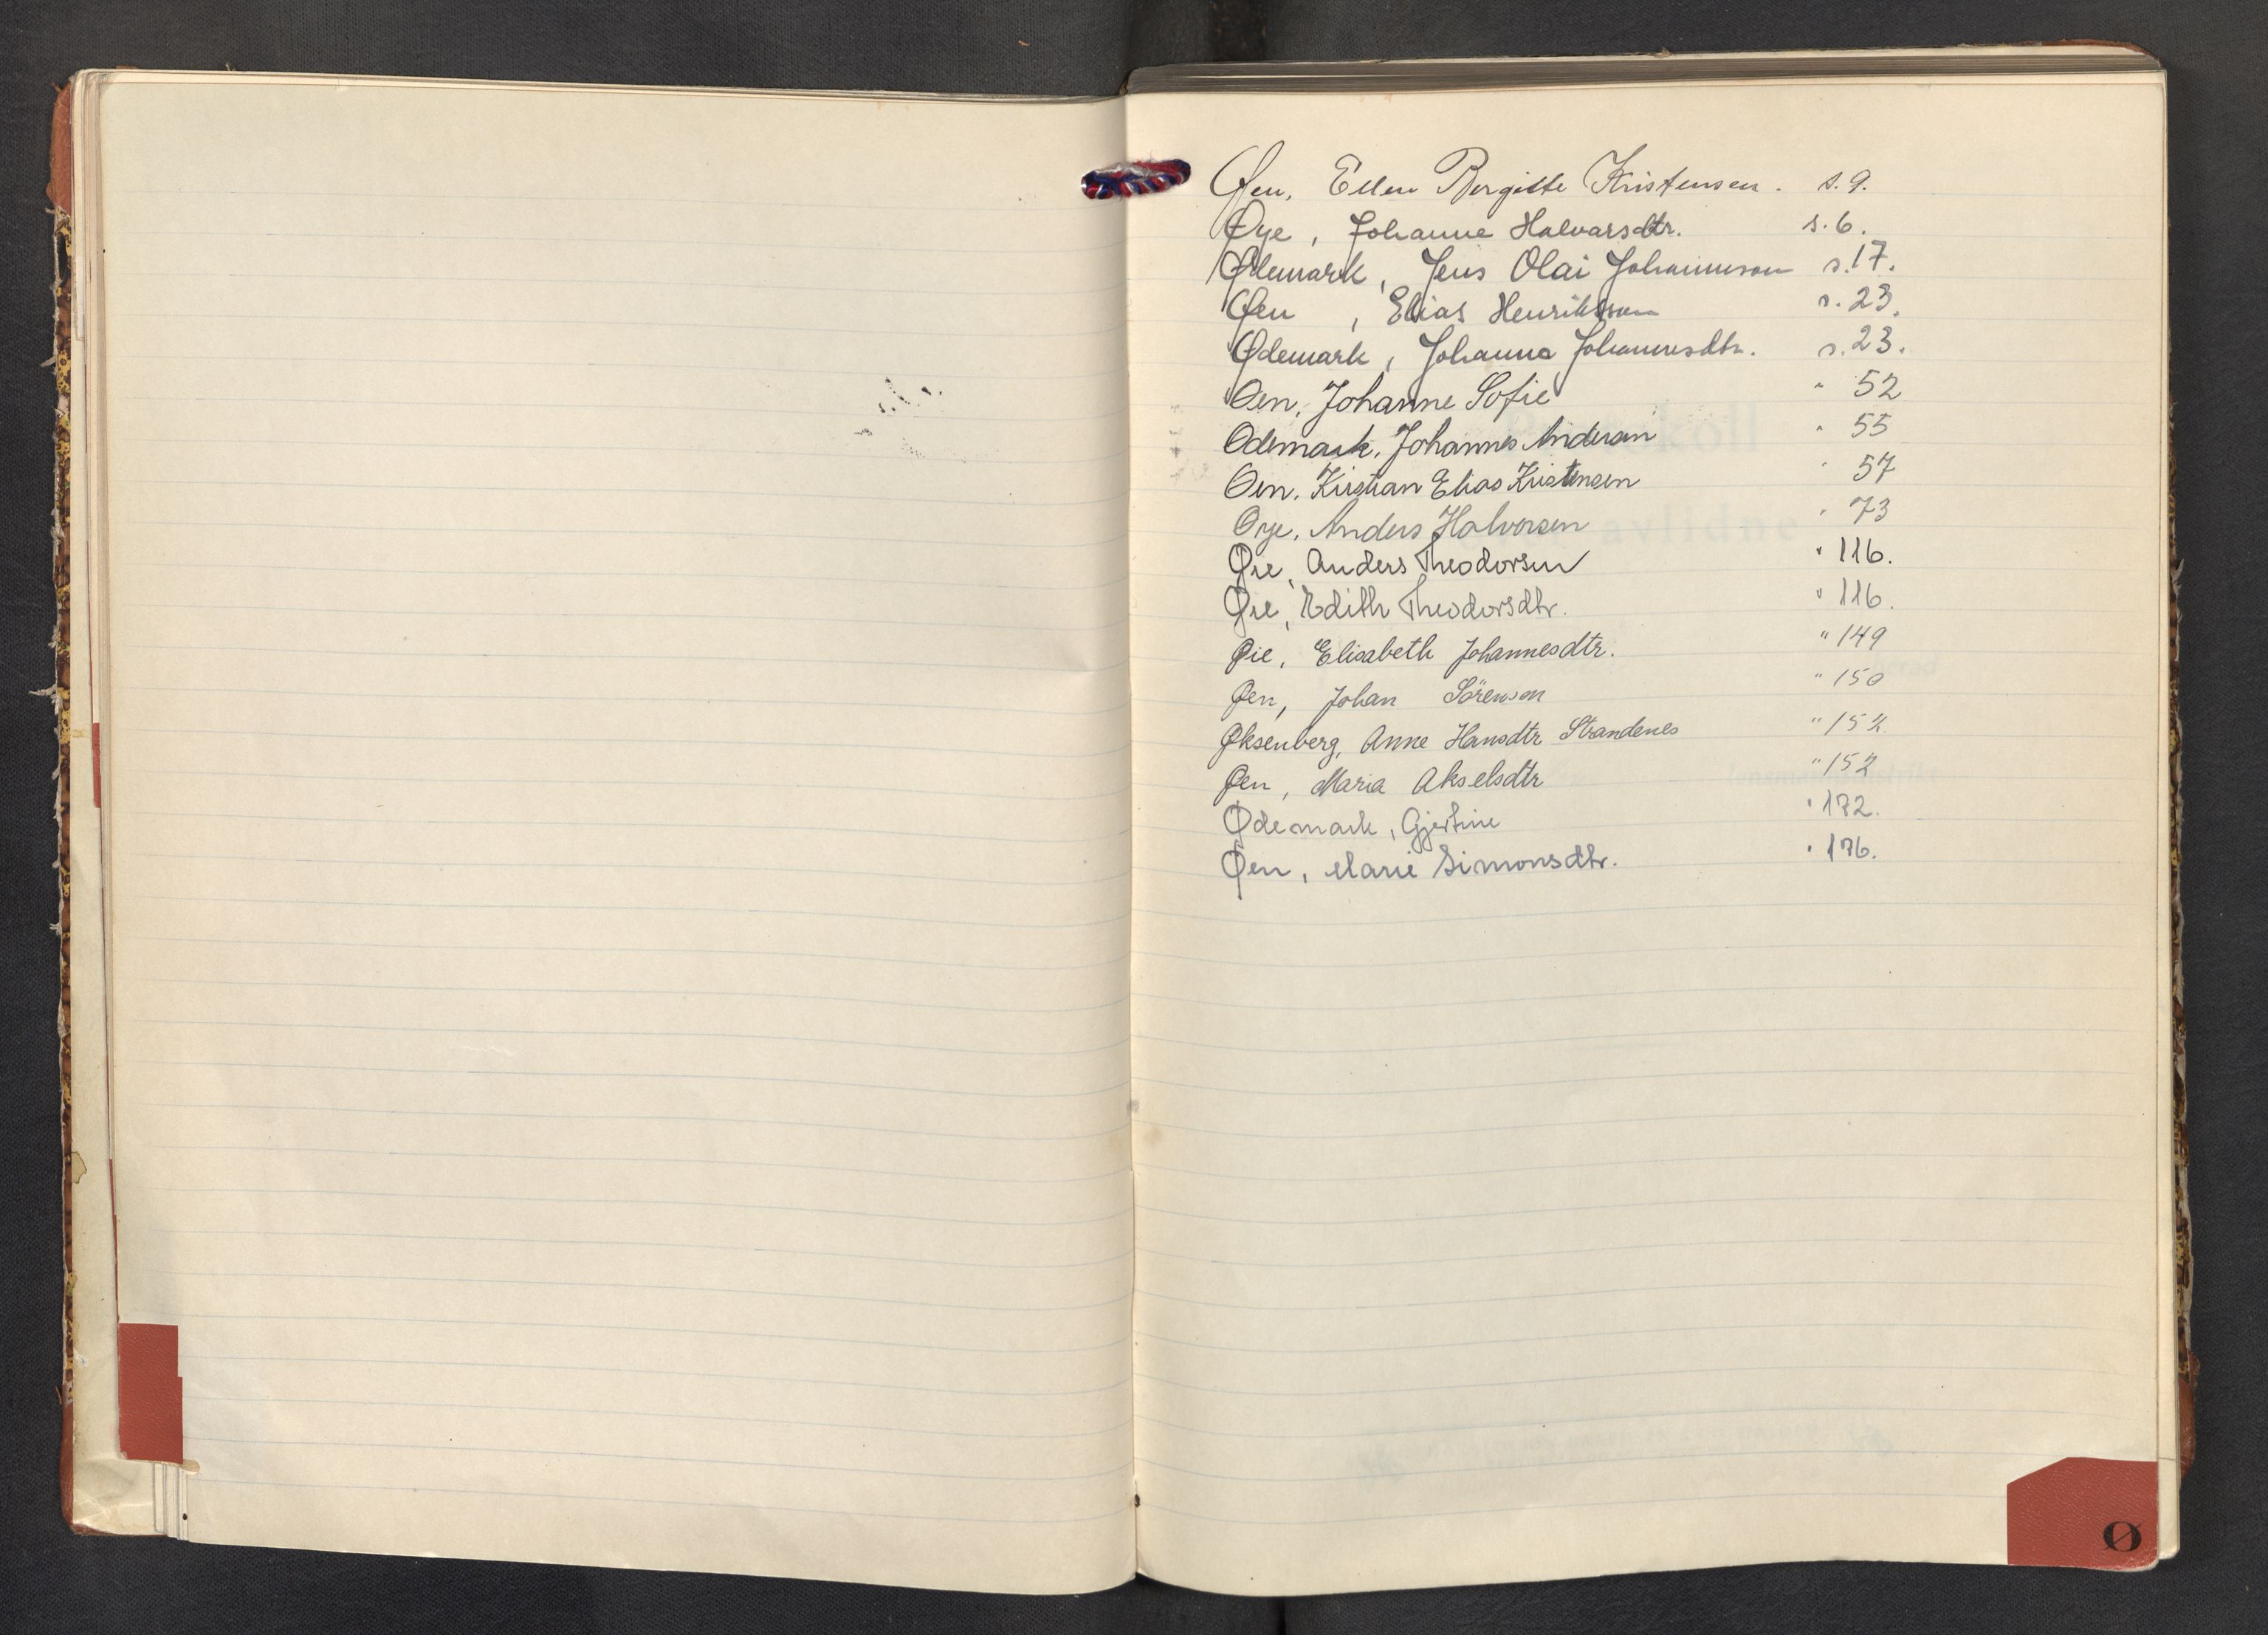 Øen, Ellen Bergitte Kristensen. s. 9.
Øye, Johanne Halvarsdtr. s. 6.
Ødemark, Jens Olai Johannesson s. 17.
Øen, Elias Henriksson s. 23.
Ødemark, Johanna Johannesdtr. s. 23.
Øen, Johanne Sofie " 52
Ødemark, Johannes Andersen " 55
Øen, Kristian Elias Kristensen " 57
Øye, Anders Halvorsen " 73
Øie, Anders Theodorsen " 116.
Øie, Edith Theodorsdtr. " 116.
Øie, Elisabeth Johannesdtr. " 149
Øen, Johan Sörensen " 150
Øksenberg, Anne Hansdtr Strandenes " 152
Øen, Maria Akselsdtr " 152
Ødemark, Gjertine " 172.
Øen, Marie Simonsdtr. " 176.
Ø